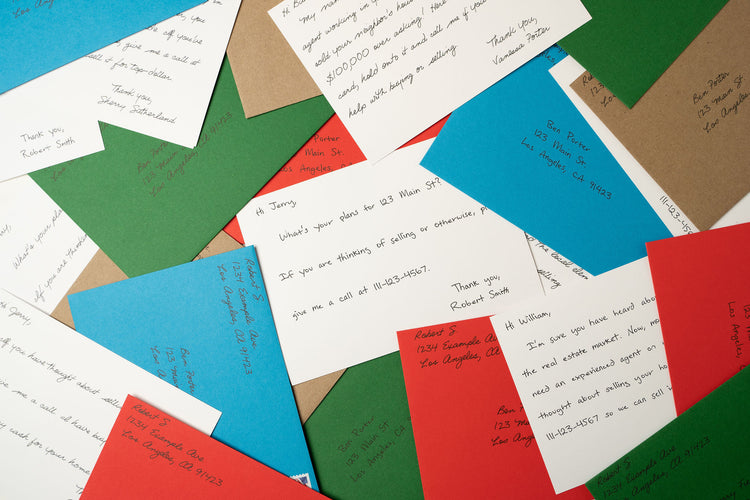 Los Angeles
you're
give me a call at
sell it for top-dollar.
Thank you,
Sherry Sutherland
Thank you,
Robert Smith
my name
agent working in
sold your neighbor's
$100,000 over asking! Here
card, hold onto it and call me if you
help with buying or selling
Thank you,
Vanessa Porter
Ben Porter
123 Main St
Los Angeles
Porter
Main St.
Los Angeles, CA
Ben Porter
123 Main St
Los Angeles, CA 91423
Ben Porter
123 Main St
Los Angeles
111-123-4567
selling
Hi Jerry,
What's your plans for 123 Main St?
If you are thinking of selling or otherwise,
give me a call at 111-123-4567.
Thank you,
Robert Smith
What's your plans
If you are thinking
Hi Jerry,
If you have thought about selling
me a call at
cash for your home
Robert S
1234 Example Ave,
Los Angeles, CA 91423
Ben Porter
123 Main St
Los Angeles, CA
Robert S
1234 Example Ave
Los Angeles, CA 91423
Ben Porter
123 Main St
Los Angeles
Robert S
1234 Example Ave
Los Angeles, CA
Ben
123 Main
Los Angeles
Hi William,
I'm sure you have heard about
the real estate market. Now,
need an experienced agent on
thought about selling your
111-123-4567 so we can sell
Ben
123 Main
Los Angeles
Robert S
1234 Example Ave
Los Angeles, CA